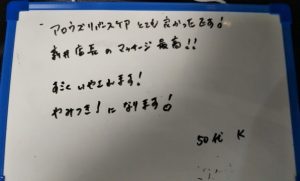 アロウズリポスケア とても良かったです!
新井店長の マッサージ 最高!!
すごく いやされます!
やみつき!になります!
50代 K